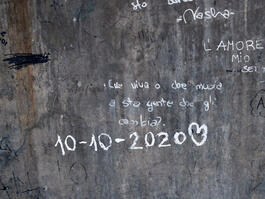 sto
-Nasha-
L'AMORE
MIO
SEI
Che viva o che muoia
a sta gente che gl
cambia?
10-10-2020